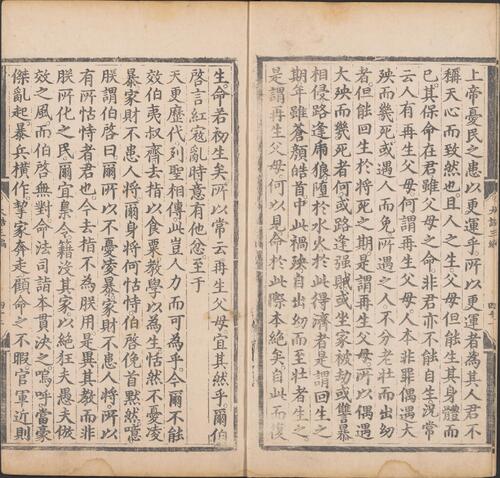 上帝憂民之患以更運乎所以更運者為其人君不
稱天心而致然也且人之生父母但能生其身體而
已其保命在君雖父母之命非君亦不能自生況常
云人有再生父母何謂再生父母人本非罪偶遇大
殃而幾死或遇人而免所遇之人不分老壯而出幼
者但能回生於將死之期是謂再生父母所以偶遇
大殃而幾死者何或路逢强賊或坐家被劫或讐暴
相侵路逢庸狼隨於水火於此得濟者是謂回生之
期年雖蒼顔皓首中此禍殃自出幼而至壯者生之
是謂再生父母何以見命於此際本絕矣自此而復
生命若初生矣所以常云再生父母宜其然乎爾伯
啓言紅寇亂時意有他忿至于
天更歷代列聖相傳此豈人力而可為乎今爾不能
效伯夷叔齊去指以食粟教學以為生恬然不憂凌
暴家財不患人將爾身將何怙恃伯啓俛首默然噫
朕謂伯啓曰爾所以不憂凌暴家財不患人將所以
有所怙恃者君也今去指不為朕用是異其教而非
朕所化之民爾宜梟令籍沒其家以絕狂夫愚夫倣
效之風而伯啓無對命法司詣本貫決之嗚呼當豪
傑亂起暴兵橫作挈家奔走顧命之不暇官軍近則